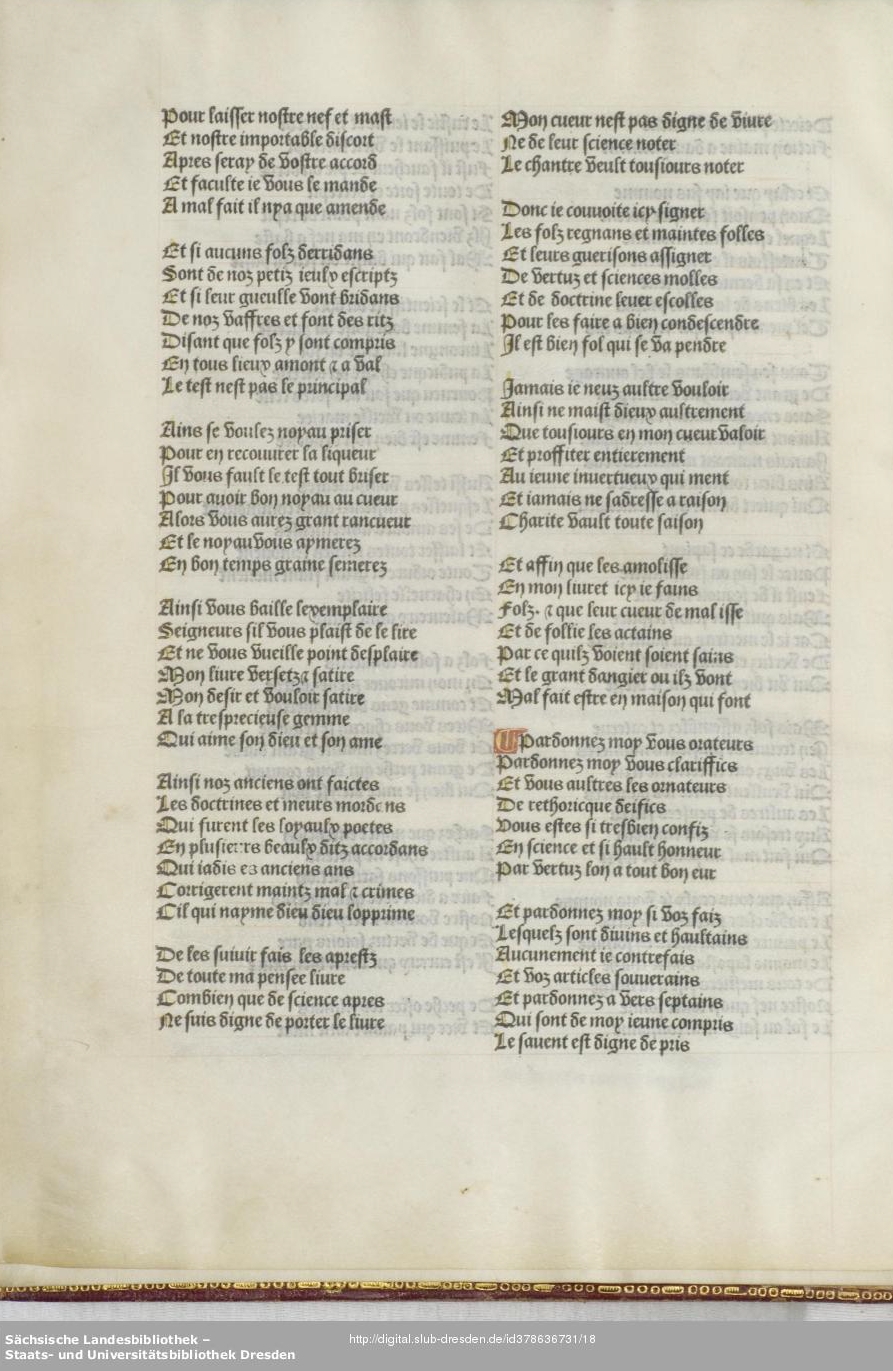 Pour laisser nostre nef et mast
Et nostre importable discort
Apres seray de vostre accord
Et faculte ie vous le mande
A mal fait il nya que amende
Et si aucuns folz derridans
Sont de noz petiz ieulx escriptz
Et si leur gueulle vont bridans
De noz baffres et font des ritz
Disant que folz y sont compris
En tous lieux amont ⁊ a val
Le test nest pas le principal
Ains se voulez noyau priser
Pour en recouurer la liqueur
Il vous fault le test tout briser
Pour auoir bon noyau au cueur
Alors vous aurez grant rancueur
Et le noyau vous aymerez
En bon temps graine semerez
Ainsi vous baille lexemplaire
Seigneurs sil vous plaist de le lire
Et ne vous vueille point desplaire
Mon liure versetz ⁊ satire
Mon desir et vouloir satire
A la tresprecieuse gemme
Qui aime son dieu et son ame
Ainsi noz anciens ont faictes
Les doctrines et meurs mordens
Qui furent les loyaulx poetes
En plusieurs beaulx ditz accordans
Qui iadis es anciens ans
Corrigerent maintz mal ⁊ crimes
Cil qui nayme dieu dieu lopprime
De les suiuir fais les aprestz
De toute ma pensee liure
Combien que de science apres
Ne suis digne de porter le liure
Mon cueur nest pas digne de viure
Ne de leur science noter
Le chantre veult tousiours noter
Donc ie couuoite icy signer
Les folz regnans et maintes folles
Et leurs guerisons assigner
De vertuz et sciences molles
Et de doctrine leuer escolles
Pour les faire a bien condescendre
Il est bien fol qui se va pendre
Jamais ie neuz aultre vouloir
Ainsi ne maist dieux aultrement
Que tousiours en mon cueur valoir
Et proffiter entierement
Au ieune inuertueux qui ment
Et iamais ne sadresse a raison
Charite vault toute saison
Et affin que les amolisse
En mon liuret icy ie fains
Folz. ⁊ que leur cueur de mal isse
Et de follie les actains
Par ce quilz voient soient sains
Et le grant dangier ou ilz vont
Mal fait estre en maison qui font
Pardonnez moy vous orateurs
Pardonnez moy vous clariffics
Et vous aultres les ornateurs
De rethoricque deifics
Vous estes si tresbien confiz
En science et si hault honneur
Par vertuz lon a tout bon eur
Et pardonnez moy si voz faiz
Lesquelz sont diuins et haultains
Aucunement ie contrefais
Et voz articles souuerains
Et pardonnez a vers septains
Qui sont de moy ieune compris
Le sauent est digne de pris
Sächsische Landesbibliothek –
Staats- und Universitätsbibliothek Dresden
http://digital.slub-dresden.de/id378636731/18